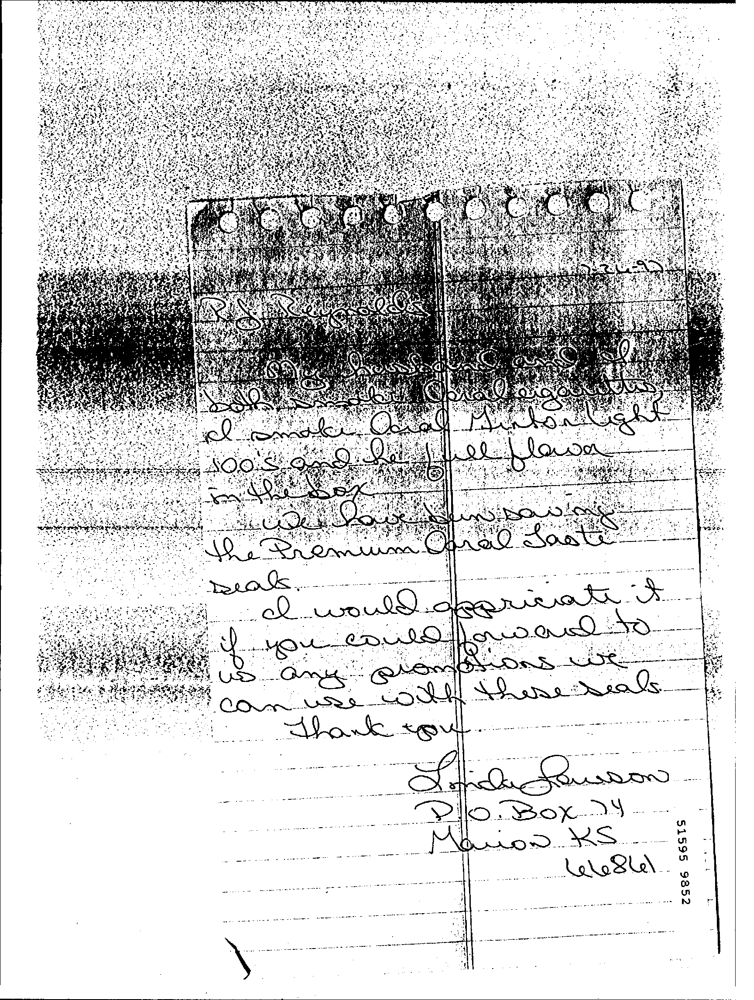 7-24-97
R J Reynolds
My husband and I
both smoke Doral cigarettes,
I smoke Doral Menthol Light
100's and he full flavor
in the box
We have been saving
the Premium Doral Taste
seals.
I would appriciate it
if you could forward to
us any promotions we
can use with these seals
Thank you.
Linda
P.O. Box 74
Marion KS
66861
51595 9852